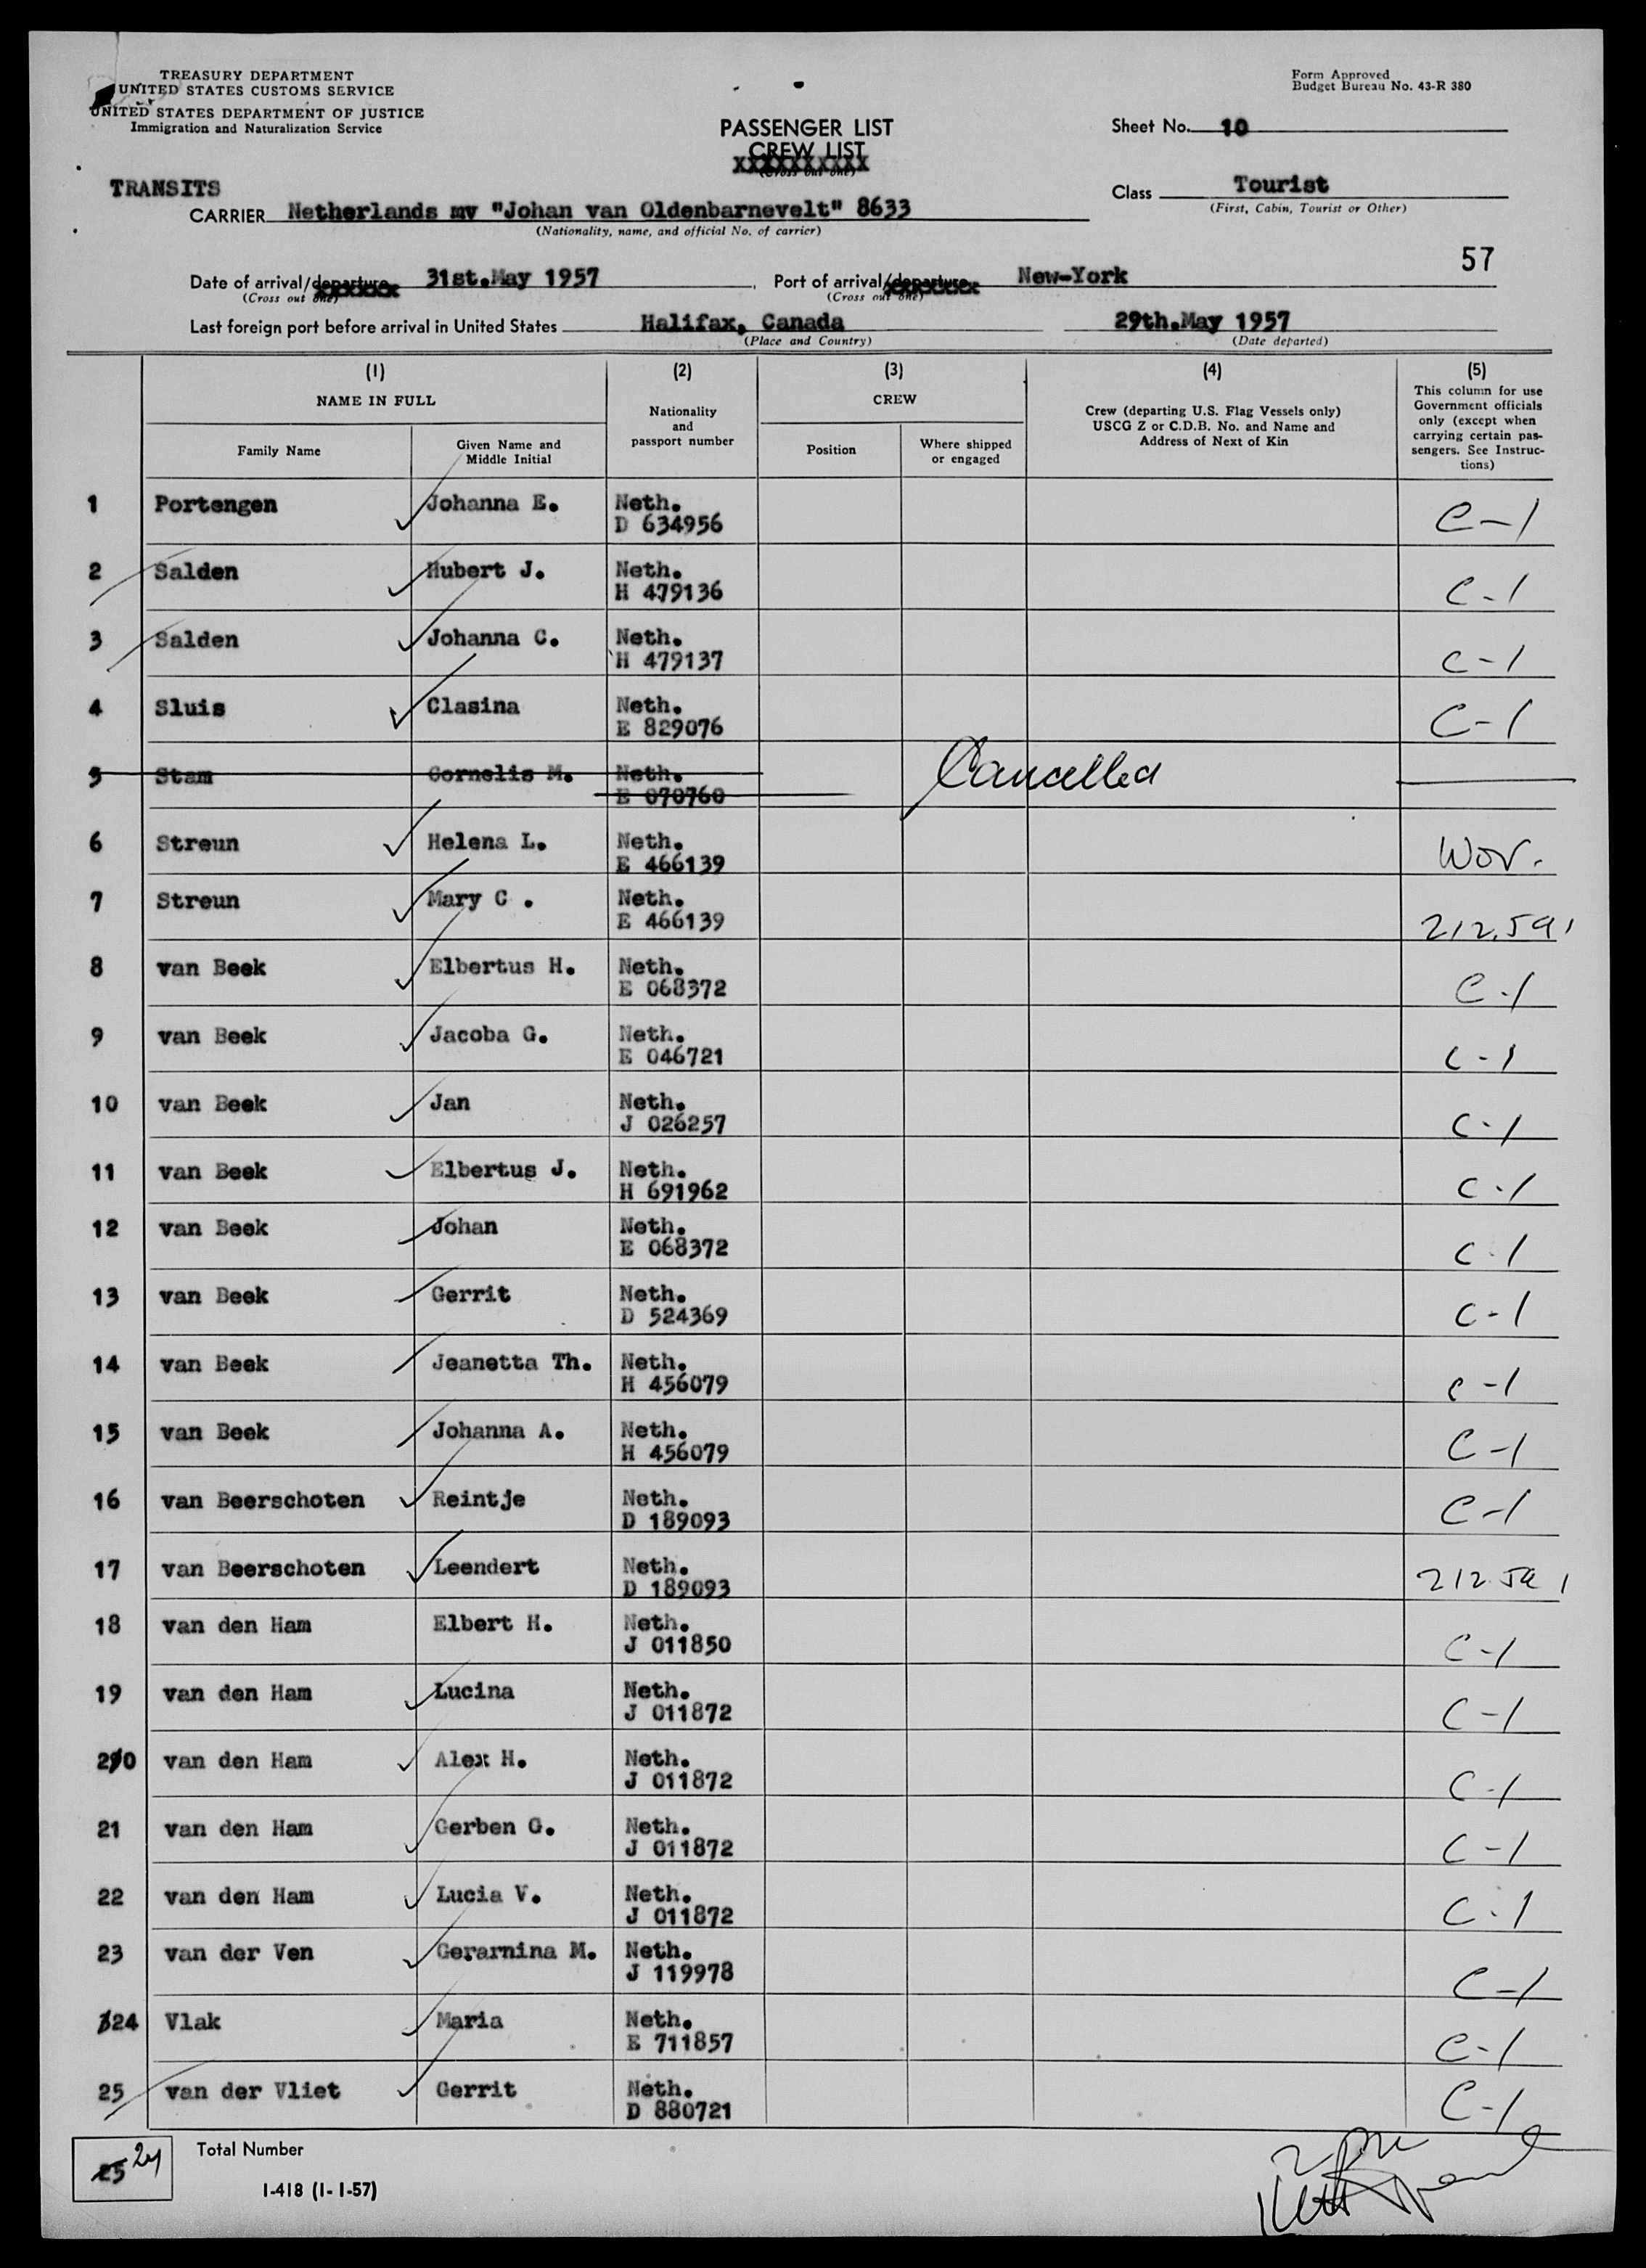 TREASURY DEPARTMENT
UNITED STATES CUSTOMS SERVICE
UNITED STATES DEPARTMENT OF JUSTICE
Immigration and Naturalization Service
Form Approved
Budget Bureau No. 43-R 380
PASSENGER LIST
CREW LIST
(Cross out one)
Sheet No. 10
TRANSITS
Class Tourist
(First, Cabin, Tourist or Other)
CARRIER Netherlands mv "Johan van Oldenbarnevelt" 8633
(Nationality, name, and official No. of carrier)
57
Date of arrival/departure 31st.May 1957 Port of arrival/departure New-York
(Cross out one) (Cross out one)
Last foreign port before arrival in United States Halifax, Canada 29th.May 1957
(Place and Country) (Date departed)
(1) (2) (3) (4) (5)
NAME IN FULL
Family Name
Given Name and
Middle Initial
Nationality
and
passport number
CREW
Position
Where shipped
or engaged
Crew (departing U.S. Flag Vessels only)
USCG Z or C.D.B. No. and Name and
Address of Next of Kin
This column for use
Government officials
only (except when
carrying certain pas-
sengers. See Instruc-
tions)
1 Portengen Johanna E. Neth.
D 634956 C-1
2 Salden Hubert J. Neth.
H 479136 C-1
3 Salden Johanna C. Neth.
H 479137 C-1
4 Sluis Clasina Neth.
E 829076 C-1
5 Stam Cornelis M. Neth. Cancelled
E 070760
6 Streun Helena L. Neth.
E 466139 Wov.
7 Streun Mary C . Neth.
E 466139 212.5a1
8 van Beek Elbertus H. Neth.
E 068372 C-1
9 van Beek Jacoba G. Neth.
E 046721 C-1
10 van Beek Jan Neth.
J 026257 C-1
11 van Beek Elbertus J. Neth.
H 691962 C-1
12 van Beek Johan Neth.
E 068372 C-1
13 van Beek Gerrit Neth.
D 524369 C-1
14 van Beek Jeanetta Th. Neth.
H 456079 C-1
15 van Beek Johanna A. Neth.
H 456079 C-1
16 van Beerschoten Reintje Neth.
D 189093 C-1
17 van Beerschoten Leendert Neth.
D 189093 212.5a1
18 van den Ham Elbert H. Neth.
J 011850 C-1
19 van den Ham Lucina Neth.
J 011872 C-1
20 van den Ham Alex H. Neth.
J 011872 C-1
21 van den Ham Gerben G. Neth.
J 011872 C-1
22 van den Ham Lucia V. Neth.
J 011872 C-1
23 van der Ven Gerarnina M. Neth.
J 119978 C-1
24 Vlak Maria Neth.
E 711857 C-1
25 van der Vliet Gerrit Neth.
D 880721 C-1
25 24 Total Number
I-418 (1-1-57)